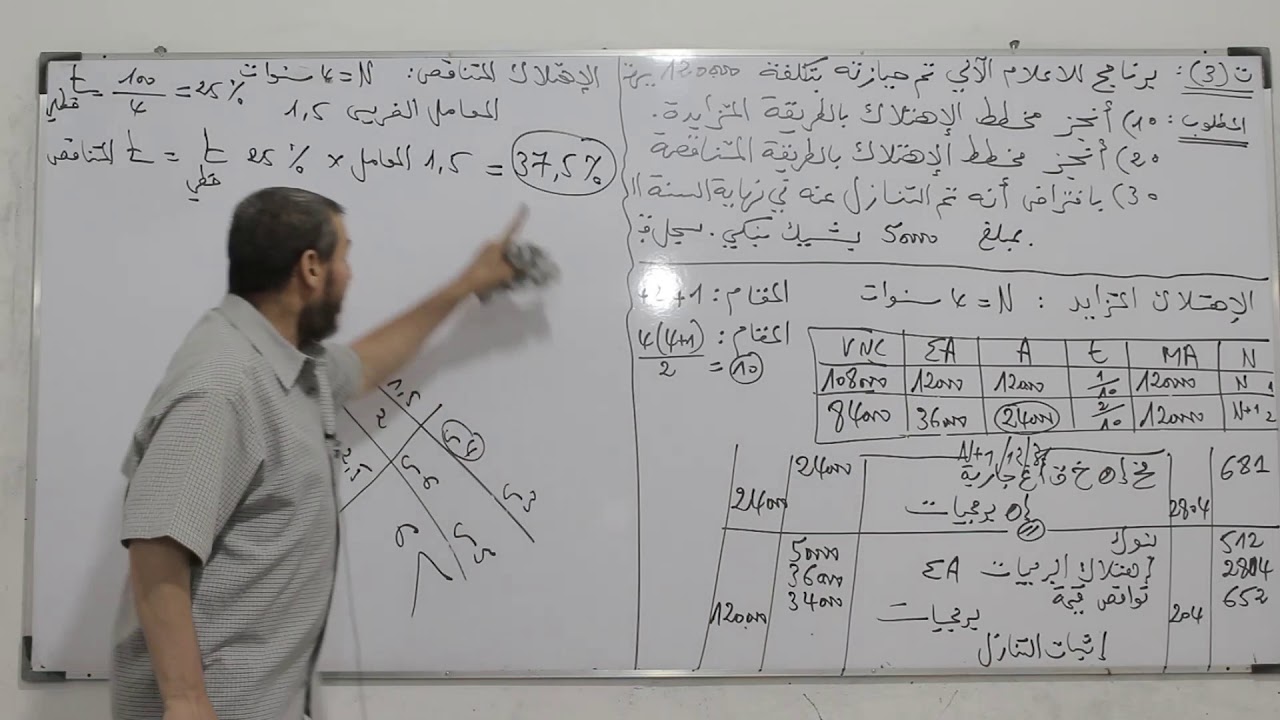 ت(3): برنامج للاعلام الآلي تم حيازته بتكلفة 120000
المطلوب: 01) أنجز مخطط الإهتلاك بالطريقة المتزايدة.
02) أنجز مخطط الإهتلاك بالطريقة المتناقصة
03) بافتراض أنه تم التنازل عنه في نهاية السنة
بمبلغ 50000 بشيك بنكي. سجل
الإهتلاك المتزايد: N = 4 سنوات
المقام: 1+2+
المقام: 4(4+1)/2 = 10
N MA t A ΣA VNC
N 1 120000 1/10 12000 12000 108000
N+1 2 120000 2/10 24000 36000 84000
N+1/12/3
681 24000
2804 برمجيات 24000
512 بنوك 50000
2804 إهتلاك البرمجيات ΣA 36000
652 نواقص قيمة 34000
204 برمجيات 120000
إثبات التنازل
الإهتلاك المتناقص: N = 4 سنوات t = 100/4 = 25%
قطي
المعامل الضريبي 1,5
t المتناقص = t 25% x المعامل 1,5 = 37,5%
قطي
1,5
2
2,5
4 3
6 5